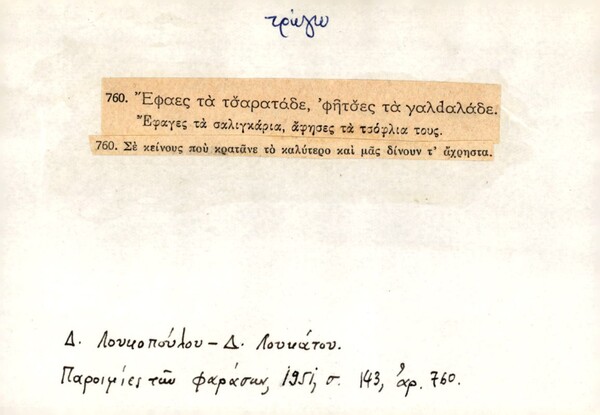 τρώγω
760. Ἔφαες τὰ τσ̌αρατάδε, ’φῆτσ̌ες τὰ γαλdαλάδε.
Ἔφαγες τὰ σαλιγκάρια, ἄφησες τὰ τσόφλια τους.
760. Σὲ κείνους ποὺ κρατᾶνε τὸ καλύτερο καὶ μᾶς δίνουν τ’ ἄχρηστα.
Δ. Λουκοπούλου – Δ. Λουκάτου.
Παροιμίες τῶν Φαράσων, 1951, σ. 143, ἀρ. 760.